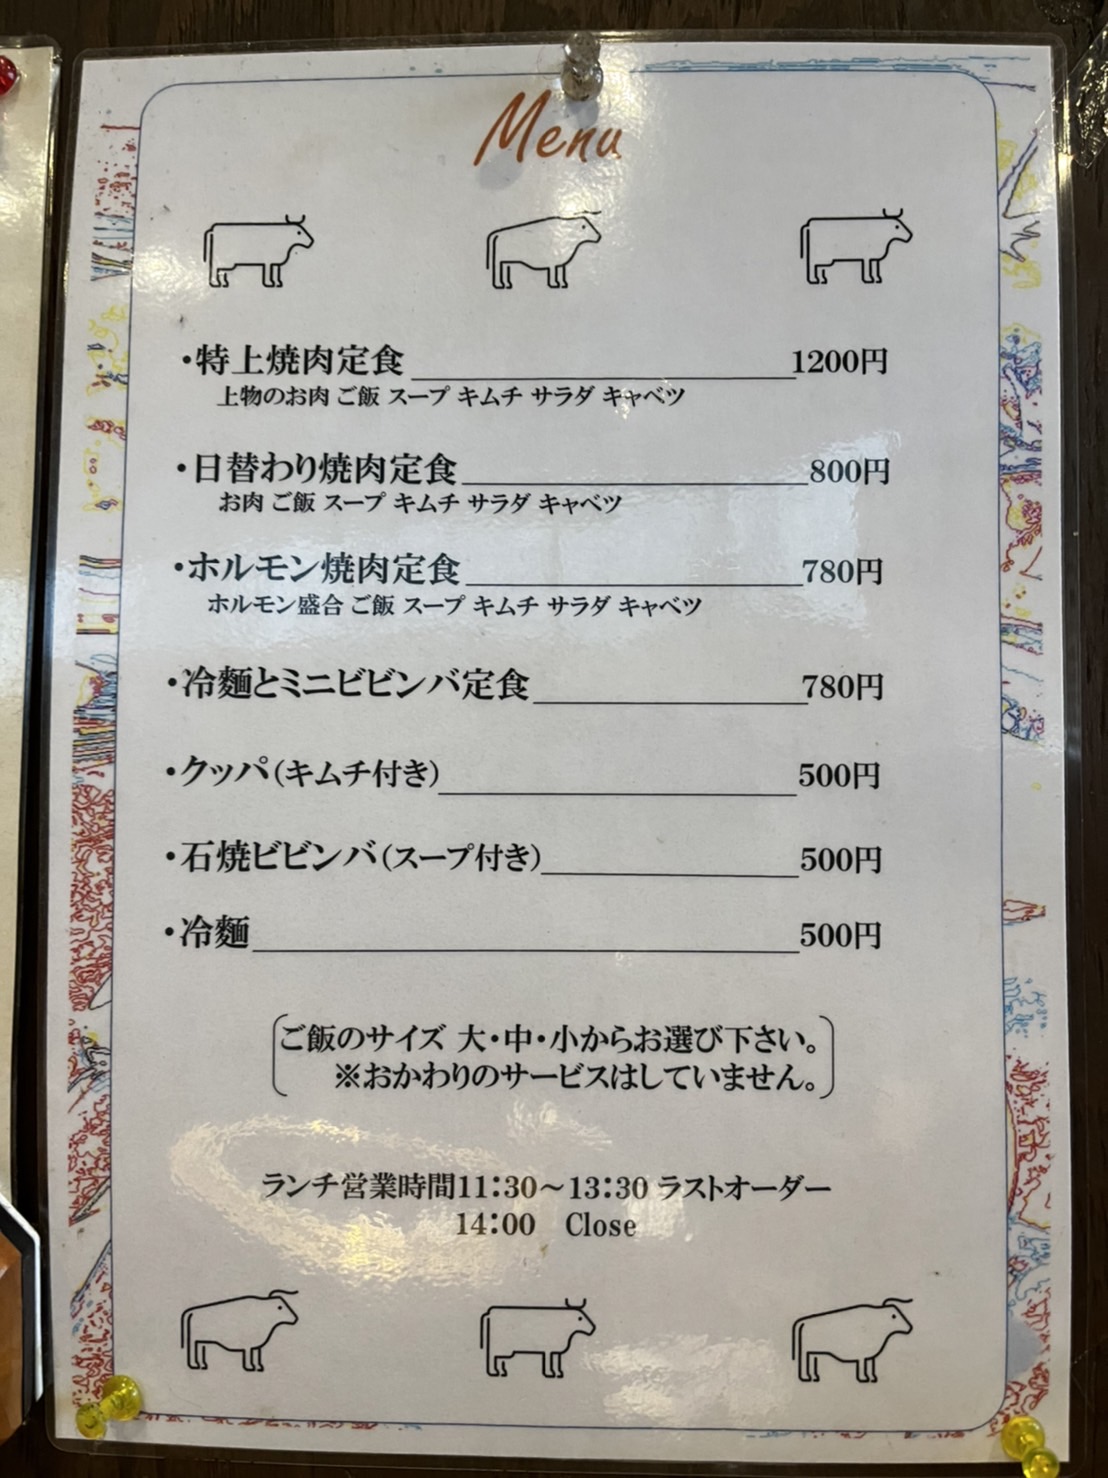 Menu
・特上焼肉定食 1200円
上物のお肉 ご飯 スープ キムチ サラダ キャベツ
・日替わり焼肉定食 800円
お肉 ご飯 スープ キムチ サラダ キャベツ
・ホルモン焼肉定食 780円
ホルモン盛合 ご飯 スープ キムチ サラダ キャベツ
・冷麺とミニビビンバ定食 780円
・クッパ(キムチ付き) 500円
・石焼ビビンバ(スープ付き) 500円
・冷麺 500円
ご飯のサイズ 大・中・小からお選び下さい。
※おかわりのサービスはしていません。
ランチ営業時間11:30～13:30 ラストオーダー
14:00 Close